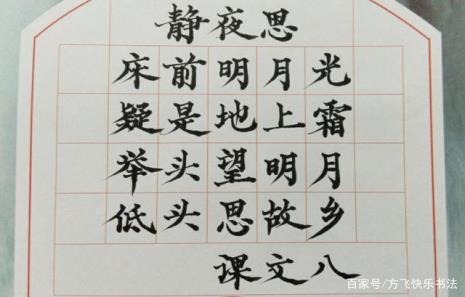 静夜思
床前明月光
疑是地上霜
举头望明月
低头思故乡
课文八
百家号/方飞快乐书法